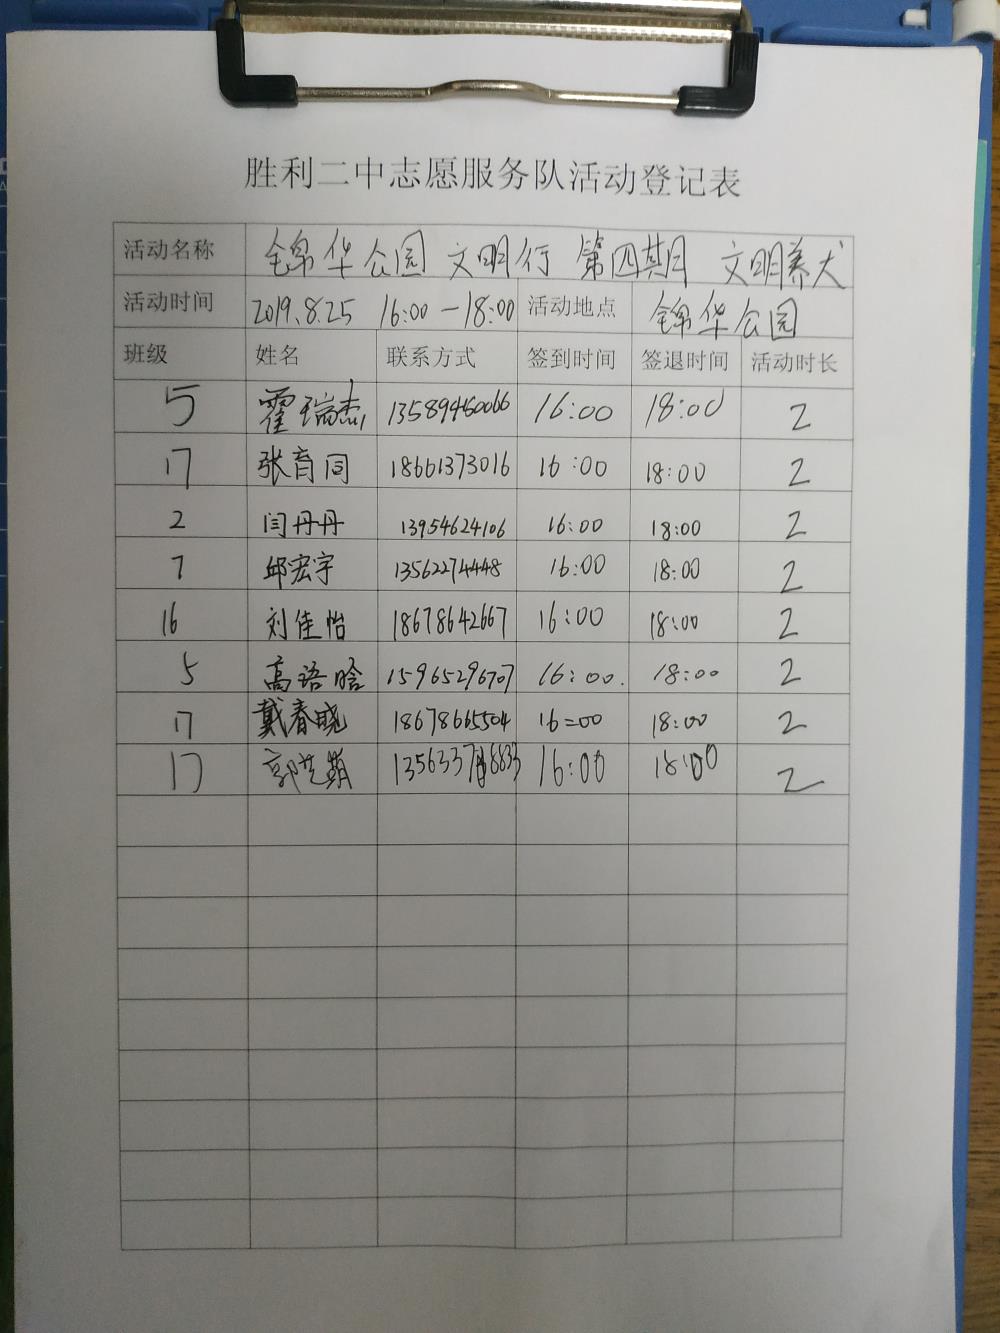 胜利二中志愿服务队活动登记表
活动名称 锦华公园 文明行 第四期 文明养犬
活动时间 2019.8.25 16:00—18:00 活动地点 锦华公园
班级 姓名 联系方式 签到时间 签退时间 活动时长
5 霍瑞杰 13589450066 16:00 18:00 2
17 张育同 18661373016 16:00 18:00 2
2 闫丹丹 13954624106 16:00 18:00 2
7 邱宏宇 13562274448 16:00 18:00 2
16 刘佳怡 18678642667 16:00 18:00 2
5 高语晗 15965296707 16:00. 18:00 2
17 戴春晓 18678665504 16=00 18:00 2
17 郭艺萌 16:00 18:00 2